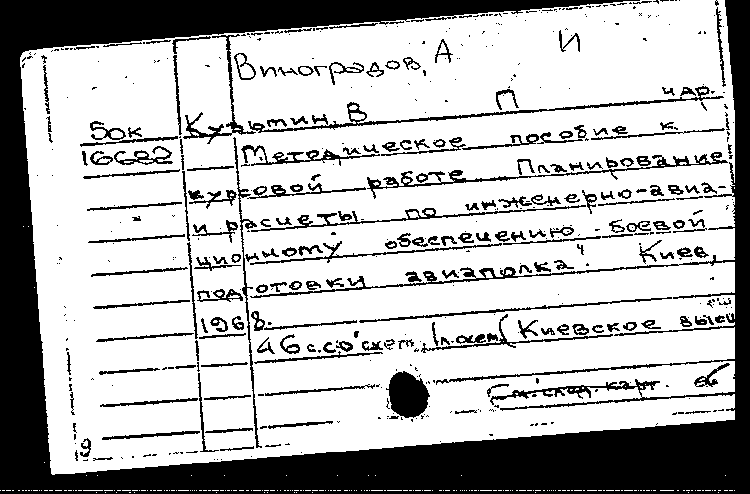 Виноградов, А И
Бок Кузьмин, В П и др.
16682 Методическое пособие к
курсовой работе Планирование
и расчеты по инженерно-авиа-
ционному обеспечению боевой
подготовки авиаполка". Киев,
1968.
46 с. со схем., (Киевское высш
См. след. карт. об
9